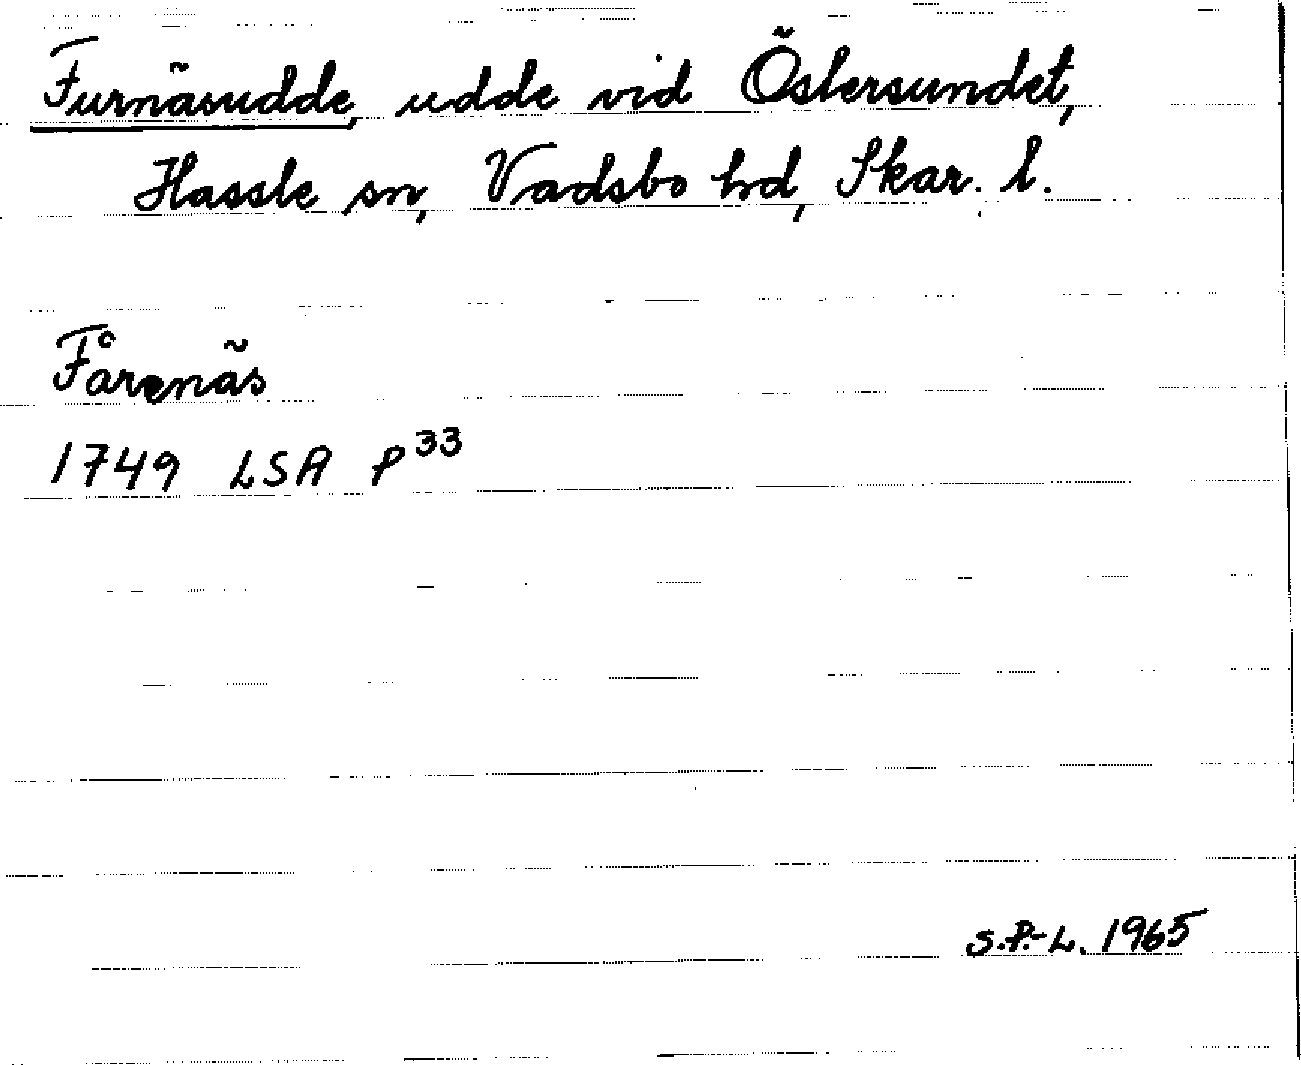 Furnäsudde, udde vid Östersundet,
Hassle sn, Vadsbo hd, Skar. l.
Fårenäs
1749 LSA P³³
S.P.-L. 1965